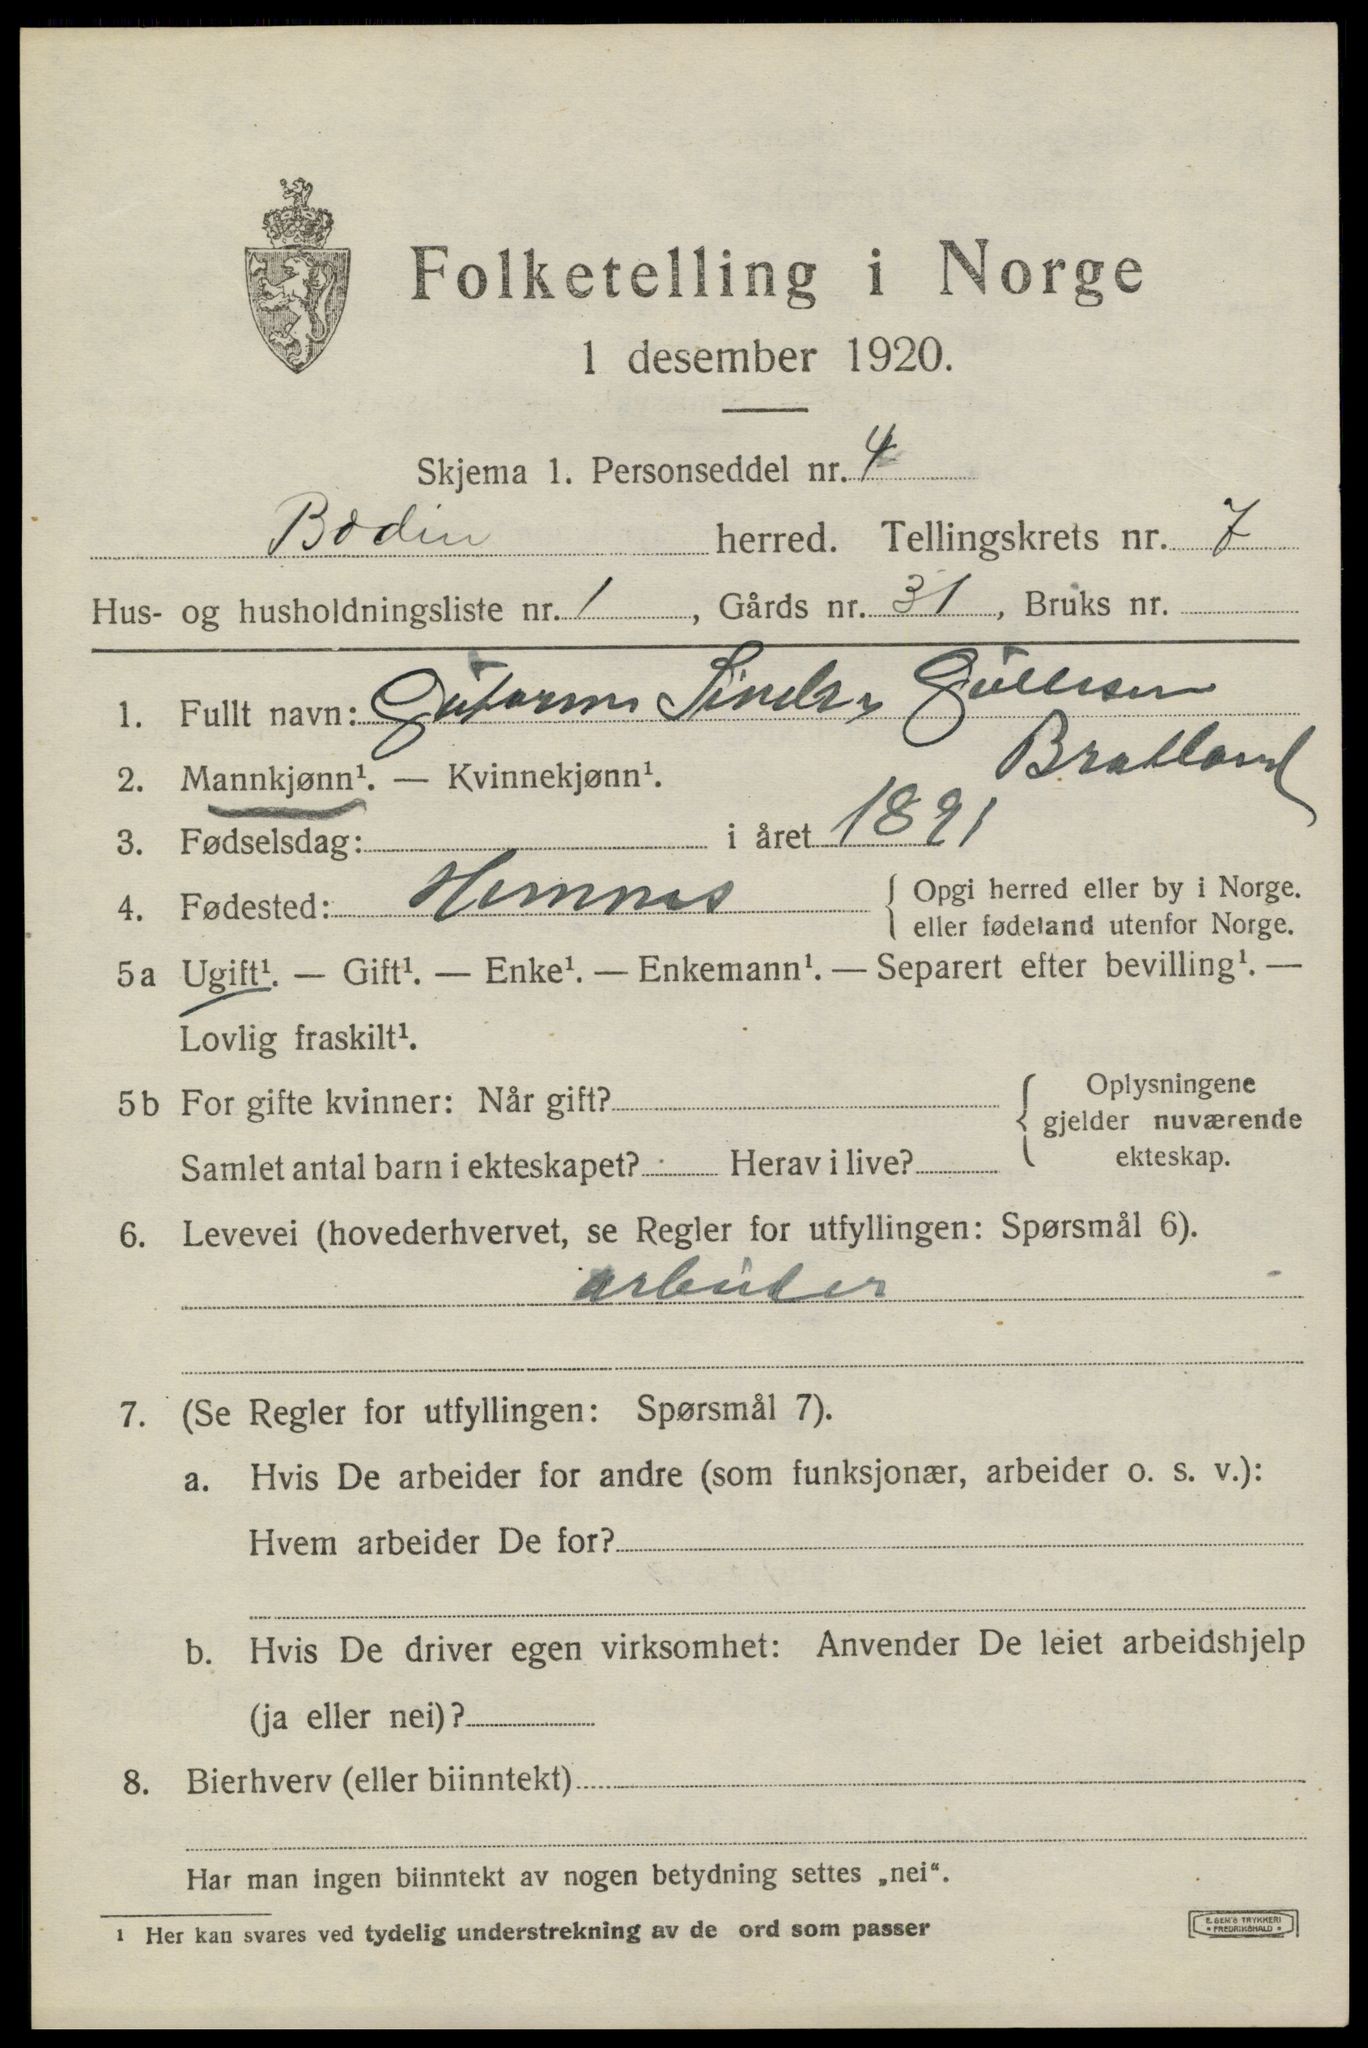 Folketelling i Norge
1 desember 1920.
Skjema 1. Personseddel nr. 4
Bodin herred. Tellingskrets nr. 7
Hus- og husholdningsliste nr. 1, Gårds nr. 31, Bruks nr.
1. Fullt navn:
Bratland
2. Mannkjønn¹. — Kvinnekjønn¹.
3. Fødselsdag: i året 1891
4. Fødested: Hemnes { Opgi herred eller by i Norge.
eller fødeland utenfor Norge.
5a Ugift¹. — Gift¹. — Enke¹. — Enkemann¹. — Separert efter bevilling¹. —
Lovlig fraskilt¹.
5b For gifte kvinner: Når gift? { Oplysningene
gjelder nuværende
Samlet antal barn i ekteskapet? Herav i live? ekteskap.
6. Levevei (hovederhvervet, se Regler for utfyllingen: Spørsmål 6).
arbeider
7. (Se Regler for utfyllingen: Spørsmål 7).
a. Hvis De arbeider for andre (som funksjonær, arbeider o. s. v.):
Hvem arbeider De for?
b. Hvis De driver egen virksomhet: Anvender De leiet arbeidshjelp
(ja eller nei)?
8. Bierhverv (eller biinntekt)
Har man ingen biinntekt av nogen betydning settes „nei“.
1 Her kan svares ved tydelig understrekning av de ord som passer
E. SEM'S TRYKKERI
FREDRIKSHALD